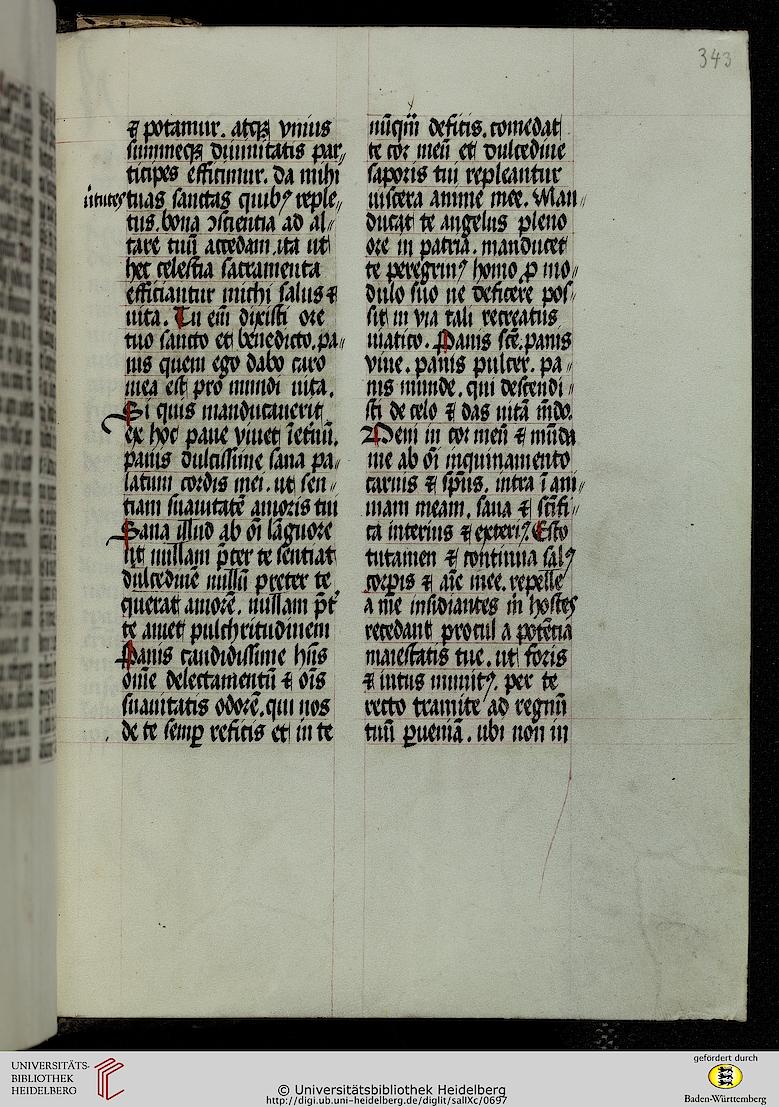 343
⁊ potamur. atqꝫ vnius
summeqꝫ diuinitatis par„
ticipes efficimur. da mihi
ũtutes tuas sanctas quibꝰ reple„
tus. bona ꝯscientia ad al„
tare tuũ accedam. ita ut
hec celestia sacramenta
efficiantur michi salus ⁊
uita. Tu eĩ dixisti ore
tuo sancto et benedicto. pa„
nis quem ego dabo caro
mea est pro mundi uita.
Si quis manducauerit
ex hoc pane viuet ĩet̃nũ.
panis dulcissime sana pa„
latum cordis mei. ut sen„
tiam suauitatẽ amoris tui
Sana illud ab oĩ lãguore
ut nullam p̃ter te sentiat
dulcedinẽ nullũ preter te
querat amorẽ. nullam p̃t̉
te amet pulchritudinem
Panis candidissime hñs
om̃e delectamentũ ⁊ oĩs
suauitatis odorẽ. qui nos
de te semꝑ reficis et in te
nũqm̃ deficis. comedat
te cor meũ et dulcedine
saporis tui repleantur
uiscera anime mee. Man„
ducat te angelus pleno
ore in patria. manducet
te peregrinꝰ homo ꝓ mo„
dulo suo ne deficere pos„
sit in via tali recreatus
uiatico. Panis sc̃e. panis
viue. panis pulcer. pa„
nis munde. qui descendi„
sti de celo ⁊ das uitã m̃do.
Veni in cor meũ ⁊ mũda
me ab oĩ inquinamento
carnis ⁊ sp̃us. intra ĩ ani„
mam meam. sana ⁊ sc̃ifi„
ca interius ⁊ exteriꝰ. Esto
tutamen ⁊ continua salꝰ
corp̃is ⁊ aĩe mee. repelle
a me insidiantes m̃ hostes
recedant procul a potẽtia
maiestatis tue. ut foris
⁊ intus munitꝰ. per te
recto tramite ad regnũ
tuũ ꝑueniã. ubi non in
UNIVERSITÄTS-
BIBLIOTHEK
HEIDELBERG
© Universitätsbibliothek Heidelberg
http://digi.ub.uni-heidelberg.de/diglit/salIXc/0697
gefördert durch
Baden-Württemberg